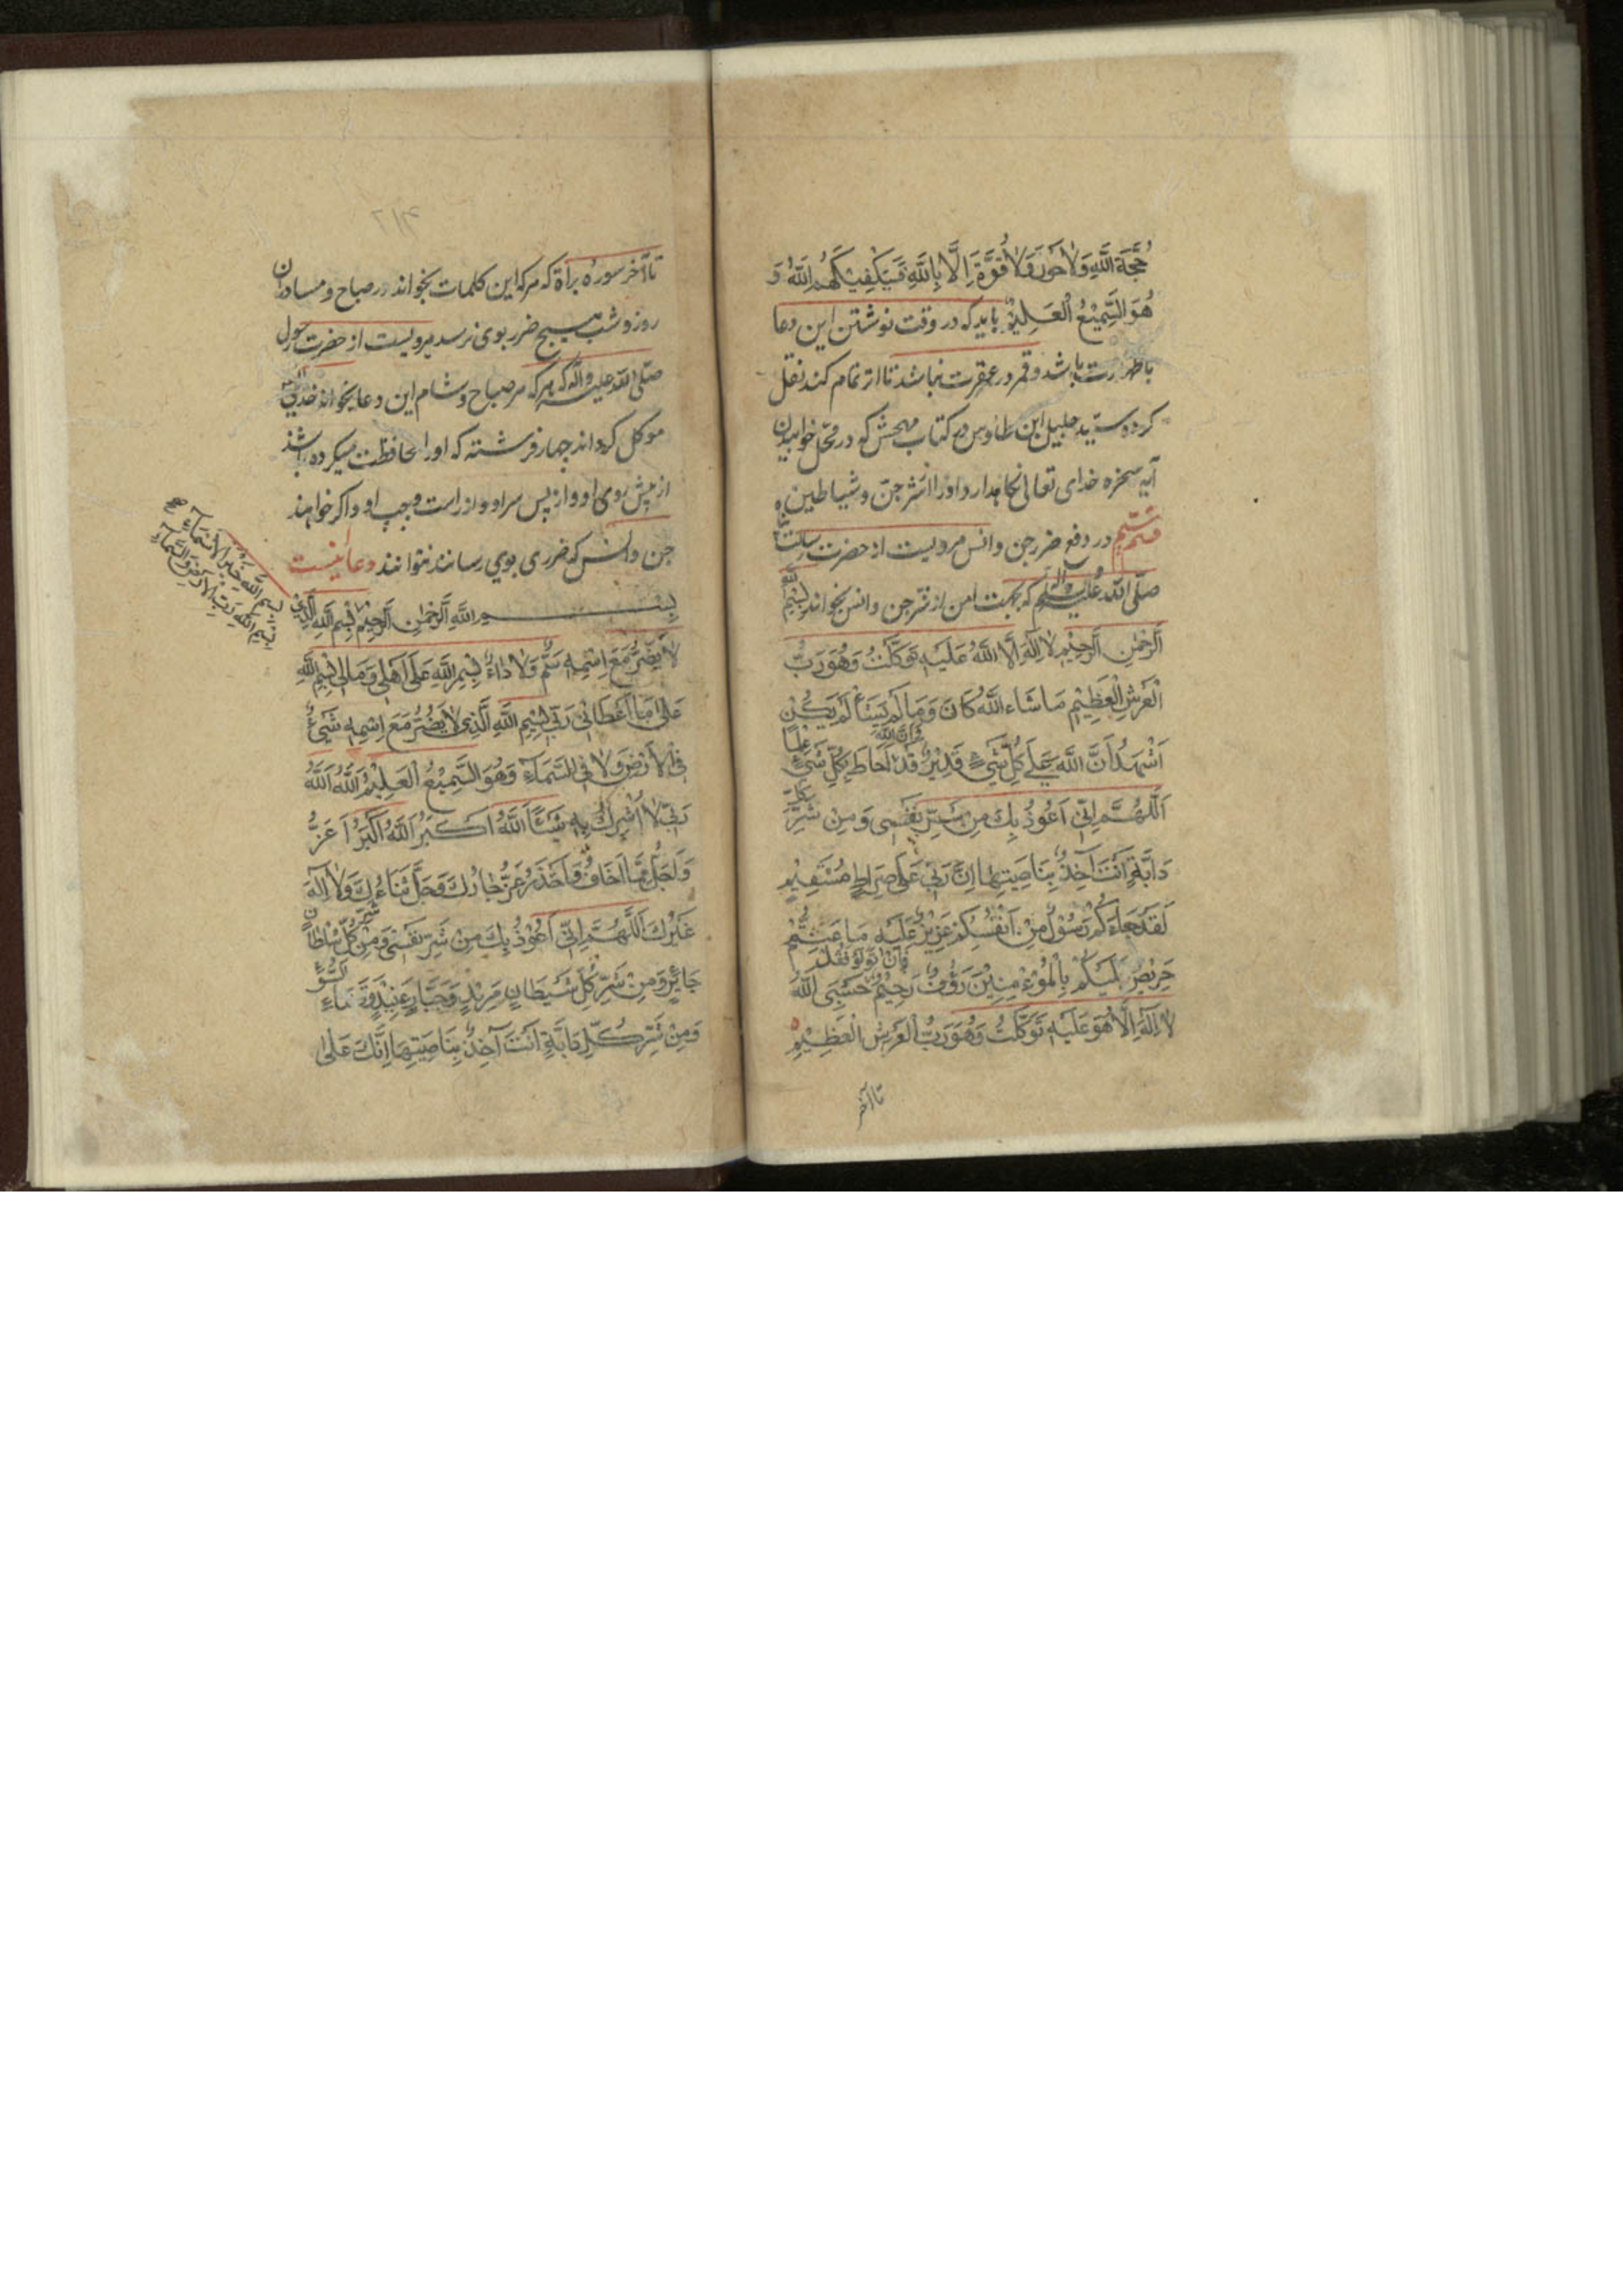 حُجَّةُ اللَّهِ وَلَا حَوْلَ وَلَا قُوَّةَ اِلَّا بِاللَّهِ فَسَيَكْفِيكَهُمُ اللَّهُ وَ
هُوَ السَّمِيْعُ الْعَلِيْمُ بايد كه در وقت نوشتن اين دعا
باطهارت باشد و قمر در عقرت نباشد تا اثر تمام كند نقل
كرده سيد جليل ابن طاوس در كتاب مهجش كه در محل خوابيدن
آيه سخره خداى تعالى نكاهدارد اورا از شر جن و شياطين
در دفع ضرر جن و انس مرويست از حضرت رسالت پناه
صلى الله عليه واله وسلم كه بجهت امن از شر جن و انس بخواند بِسْمِ اللَّه
اَلرَّحْمٰنِ اَلرَّحِيْمِ لَا اِلٰهَ اِلَّا اللَّهُ عَلَيْهِ تَوَكَّلْتُ وَهُوَ رَبُّ
الْعَرْشِ الْعَظِيْمِ مَا شَاءَ اللَّهُ كَانَ وَمَا لَمْ يَشَأْ لَمْ يَكُنْ
اَشْهَدُ اَنَّ اللَّهَ عَلٰى كُلِّ شَىْءٍ قَدِيْرٌ وَاَنَّ اللَّهَ قَدْ اَحَاطَ بِكُلِّ شَىْءٍ عِلْمًا
اَللّٰهُمَّ اِنِّى اَعُوْذُ بِكَ مِنْ شَرِّ نَفْسِى وَمِنْ شَرِّ كُلِّ
دَابَّةٍ اَنْتَ آخِذٌ بِنَاصِيَتِهَا اِنَّ رَبِّى عَلٰى صِرَاطٍ مُسْتَقِيْمٍ
لَقَدْ جَاءَكُمْ رَسُوْلٌ مِنْ اَنْفُسِكُمْ عَزِيْزٌ عَلَيْهِ مَا عَنِتُّمْ
حَرِيْصٌ عَلَيْكُمْ بِالْمُؤْمِنِيْنَ رَؤُفٌ رَحِيْمٌ فَاِنْ تَوَلَّوْ فَقُلْ حَسْبِىَ اللَّهُ
لَا اِلٰهَ اِلَّا هُوَ عَلَيْهِ تَوَكَّلْتُ وَهُوَ رَبُّ الْعَرْشِ الْعَظِيْمِ
تا آخر
٢١٣
تا آخر سوره براة كه هر كه اين كلمات بخواند در صباح و مسا در ان
روز و شب هيچ ضرر بوى نرسد مرويست از حضرت رسول
صلى الله عليه واله كه هر كه هر صباح و شام اين دعا بخواند خداى
موكل كرداند چهار فرشته كه اورا محافظت ميكرده باشند
از پيش روى او و از پس سر او و از راست و چپ او و اكر خواهند
جن و انس كه ضررى بوي رسانند نتوانند دعا اينست
بسم اللَّهِ الرَّحْمٰنِ الرَّحِيْمِ بِسْمِ اللَّهِ الَّذِى
لَا يَضُرُّ مَعَ اِسْمِهِ سَمٌّ وَلَا دَاءٌ بِسْمِ اللَّهِ عَلٰى اَهْلِى وَمَالِى بِسْمِ اللَّهِ
عَلٰى مَا اَعْطَانِى رَبِّى بِسْمِ اللَّهِ الَّذِى لَا يَضُرُّ مَعَ اِسْمِهِ شَىْءٌ
فِى الْاَرْضِ وَلَا فِى السَّمَاءِ وَهُوَ السَّمِيْعُ الْعَلِيْمُ اَللَّهُ اَللَّهُ
رَبِّى لَا اُشْرِكُ بِهِ شَيْئًا اَللَّهُ اَكْبَرُ اَللَّهُ اَكْبَرُ اَعَزُّ
وَاَجَلُّ مِمَّا اَخَافُ وَاَحْذَرُ عَزَّ جَارُكَ وَجَلَّ ثَنَاءُكَ وَلَا اِلٰهَ
غَيْرُكَ اَللّٰهُمَّ اِنِّى اَعُوْذُ بِكَ مِنْ شَرِّ نَفْسِى وَمِنْ شَرِّ كُلِّ سُلْطَانٍ
جَائِرٍ وَمِنْ شَرِّ كُلِّ شَيْطَانٍ مَرِيْدٍ وَجَبَّارٍ عَنِيْدٍ وَقَضَاءِ السُّوْءِ
وَمِنْ شَرِّ كُلِّ دَابَّةٍ اَنْتَ آخِذٌ بِنَاصِيَتِهَا اِنَّكَ عَلٰى
بِسْمِ اللَّهِ خَيْرِ الْاَسْمَاءِ
بِسْمِ اللَّهِ رَبِّ الْاَرْضِ وَالسَّمَاءِ